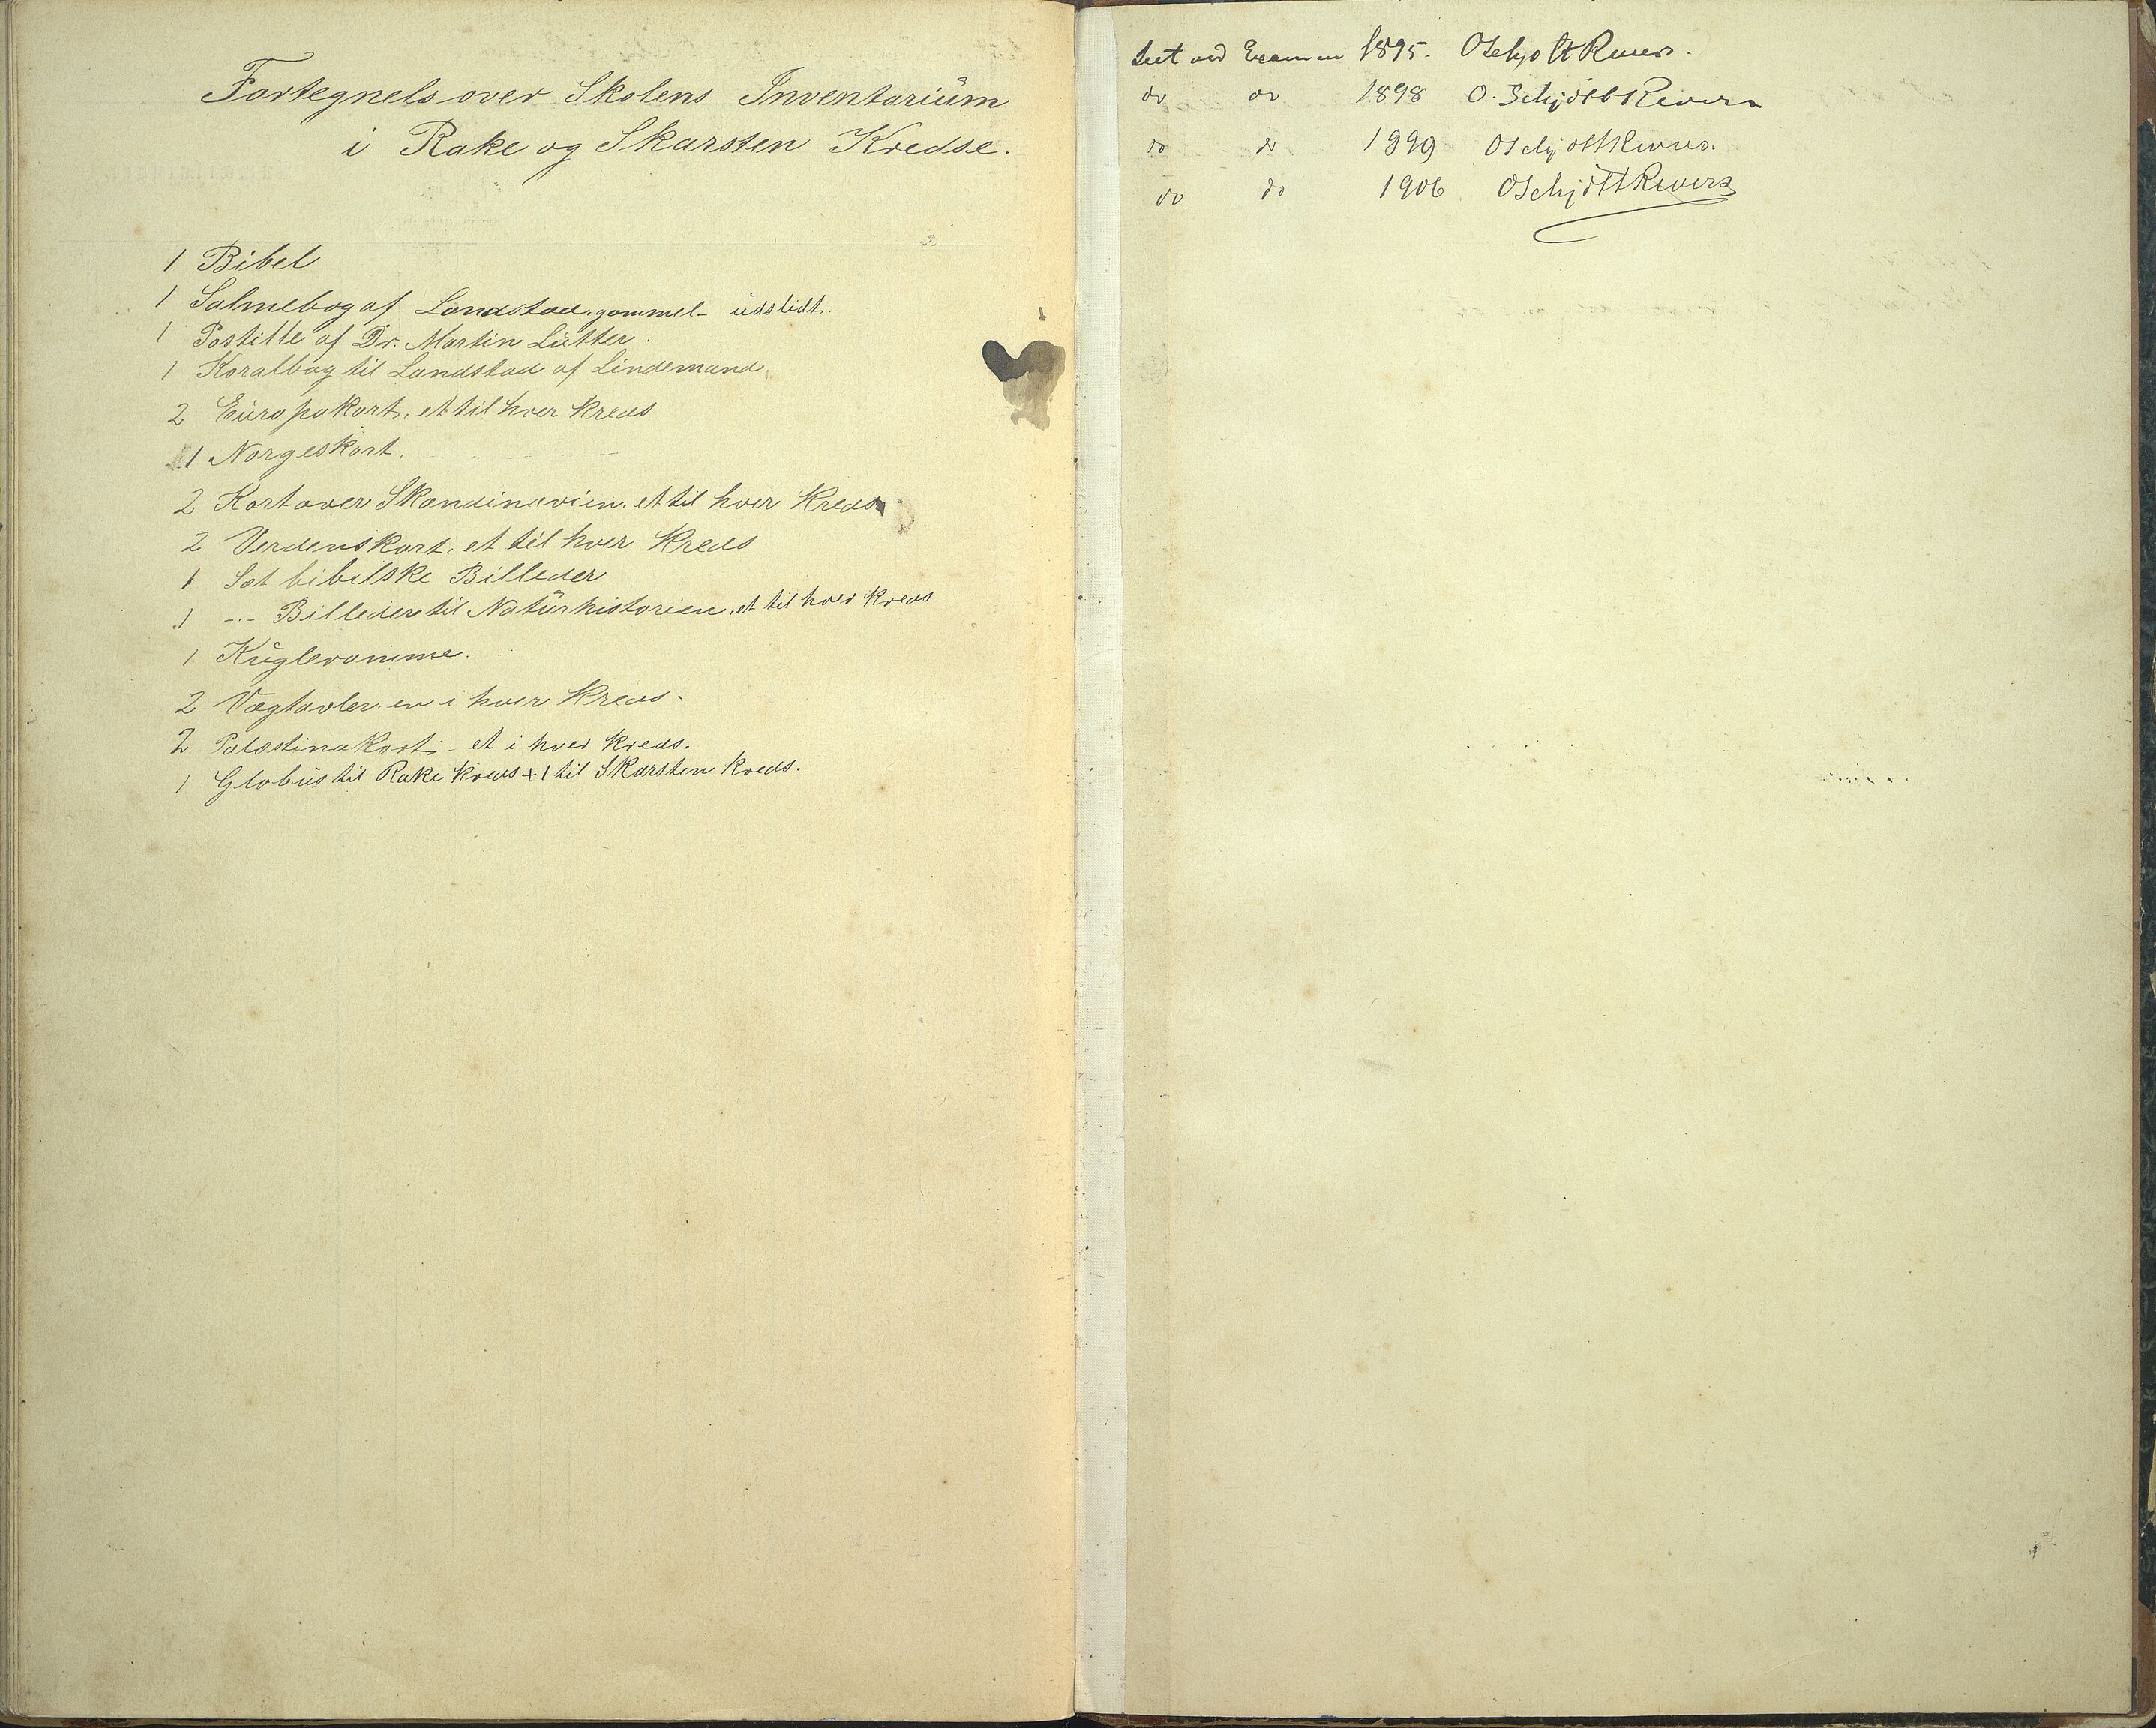 Fortegnels over Skolens Inventarium
i Rake og Skarsten Kredse.
1 Bibel
1 Salmebog af Landstad. gammel - udslidt.
1 Postille af Dr. Martin Lutter.
1 Koralbog til Landstad af Lindemand.
2 Europakart, et til hver Kreds
1 Norgeskart.
2 Kart over Skandinavien. et til hver Kreds
2 Verdenskart. et til hver Kreds
1 Sæt bibelske Billeder
1 -..- Billeder til Naturhistorien. et til hver Kreds
1 Kugleramme.
2 Vægtavler. en i hver Kreds.
2 Palæstinakart - et i hver Kreds.
1 Globus til Rake Kreds + 1 til Skarsten Kreds.
Seet ved Examen 1895. O Schjøtt Rivers.
do do 1898 O. Schjøtt Rivers
do do 1899 O Schjøtt Rivers.
do do 1906 O Schjøtt Rivers